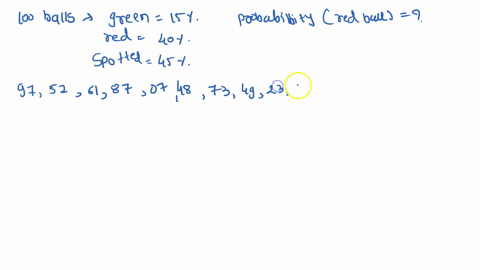 100 balls → green = 15%. probability (red ball) = ?
red = 40%.
Spotted = 45%.
97, 52, 61, 87, 07, 48, 73, 49, 23,